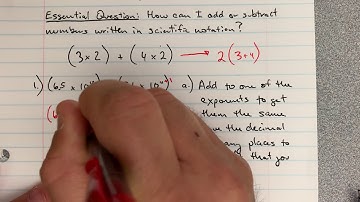 Essential Question: How can I add or subtract
numbers written in scientific notation?
(3 x 2) + (4 x 2) → 2(3+4)
1.) (6.5 x 10 x 10 a.) Add to one of the
exponents to get
them the same
the decimal
many places to
that you